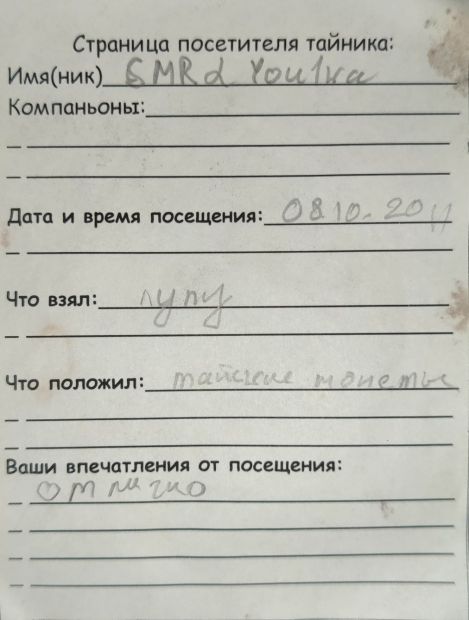 Страница посетителя тайника:
Имя(ник)
Компаньоны:
Дата и время посещения: 08.10.2011
Что взял: лупу
Что положил: тайские монеты
Ваши впечатления от посещения:
отлично